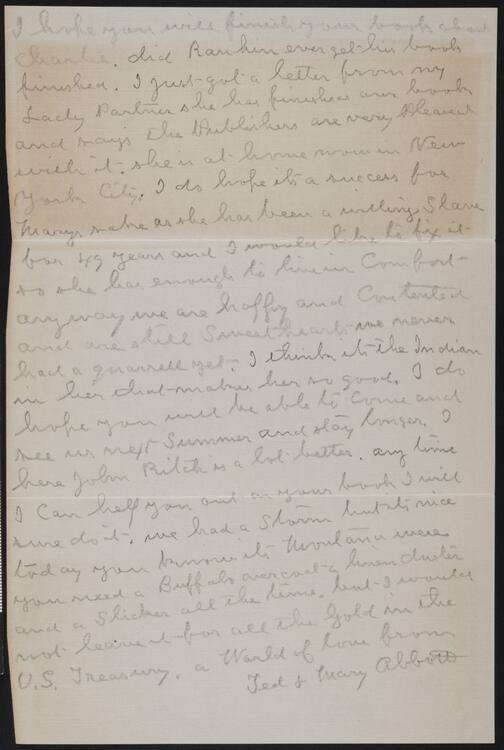 I hope you will finish your book about
Charlie. did Rankin ever get his book
finished. I just got a letter from my
Lady Partner she has finished our book
and says the Publishers are very Pleased
with it. she is at home now in New
York City. I do hope its a success for
Marys sake as she has been a willing Slave
for 49 years and I would like to fix it
so she has enough to live in Comfort
any way we are happy and Contented
and are still Sweethearts we never
had a quarrell yet. I think its the Indian
in her that makes her so good. I do
hope you will be able to Come and
see us next Summer and stay longer. I
hear John Ritch is a lot better. any time
I Can help you out on your book I will
sure do it. we had a Storm but its nice
today you know its Montana were
you need a Buffalo overcoat a linen duster
and a Slicker all the time. but I would
not leave it for all the Gold in the
U.S. Treasury. a World of love from
Ted & Mary Abbott